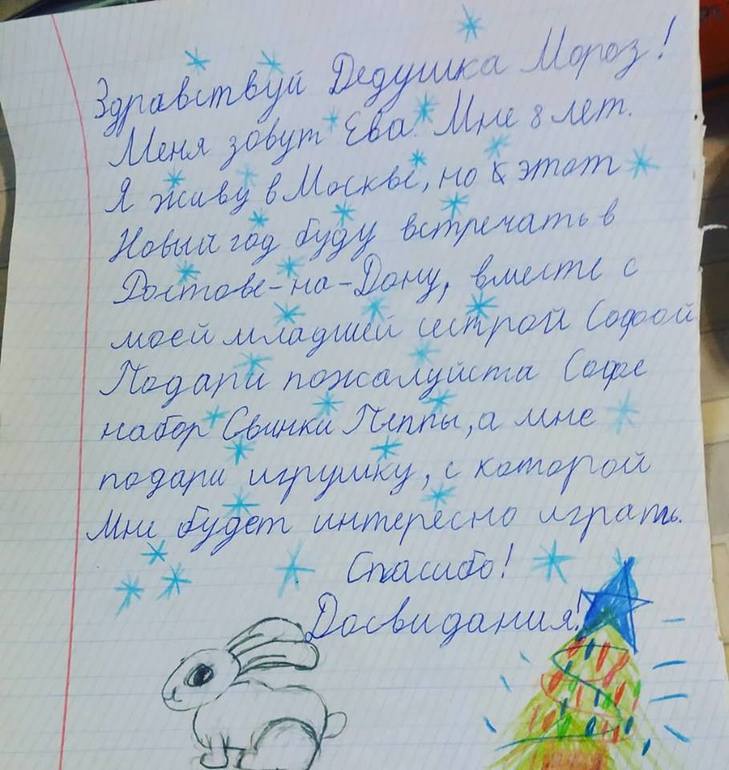 Здравствуй Дедушка Мороз!
Меня зовут Ева. Мне 8 лет.
Я живу в Москве, но в этот
Новый год буду встречать в
Ростове-на-Дону, вместе с
моей младшей сестрой Софой
Подари пожалуйста Софе
набор Свинки Пеппы, а мне
подари игрушку, с которой
мне будет интересно играть.
Спасибо!
Досвидания!